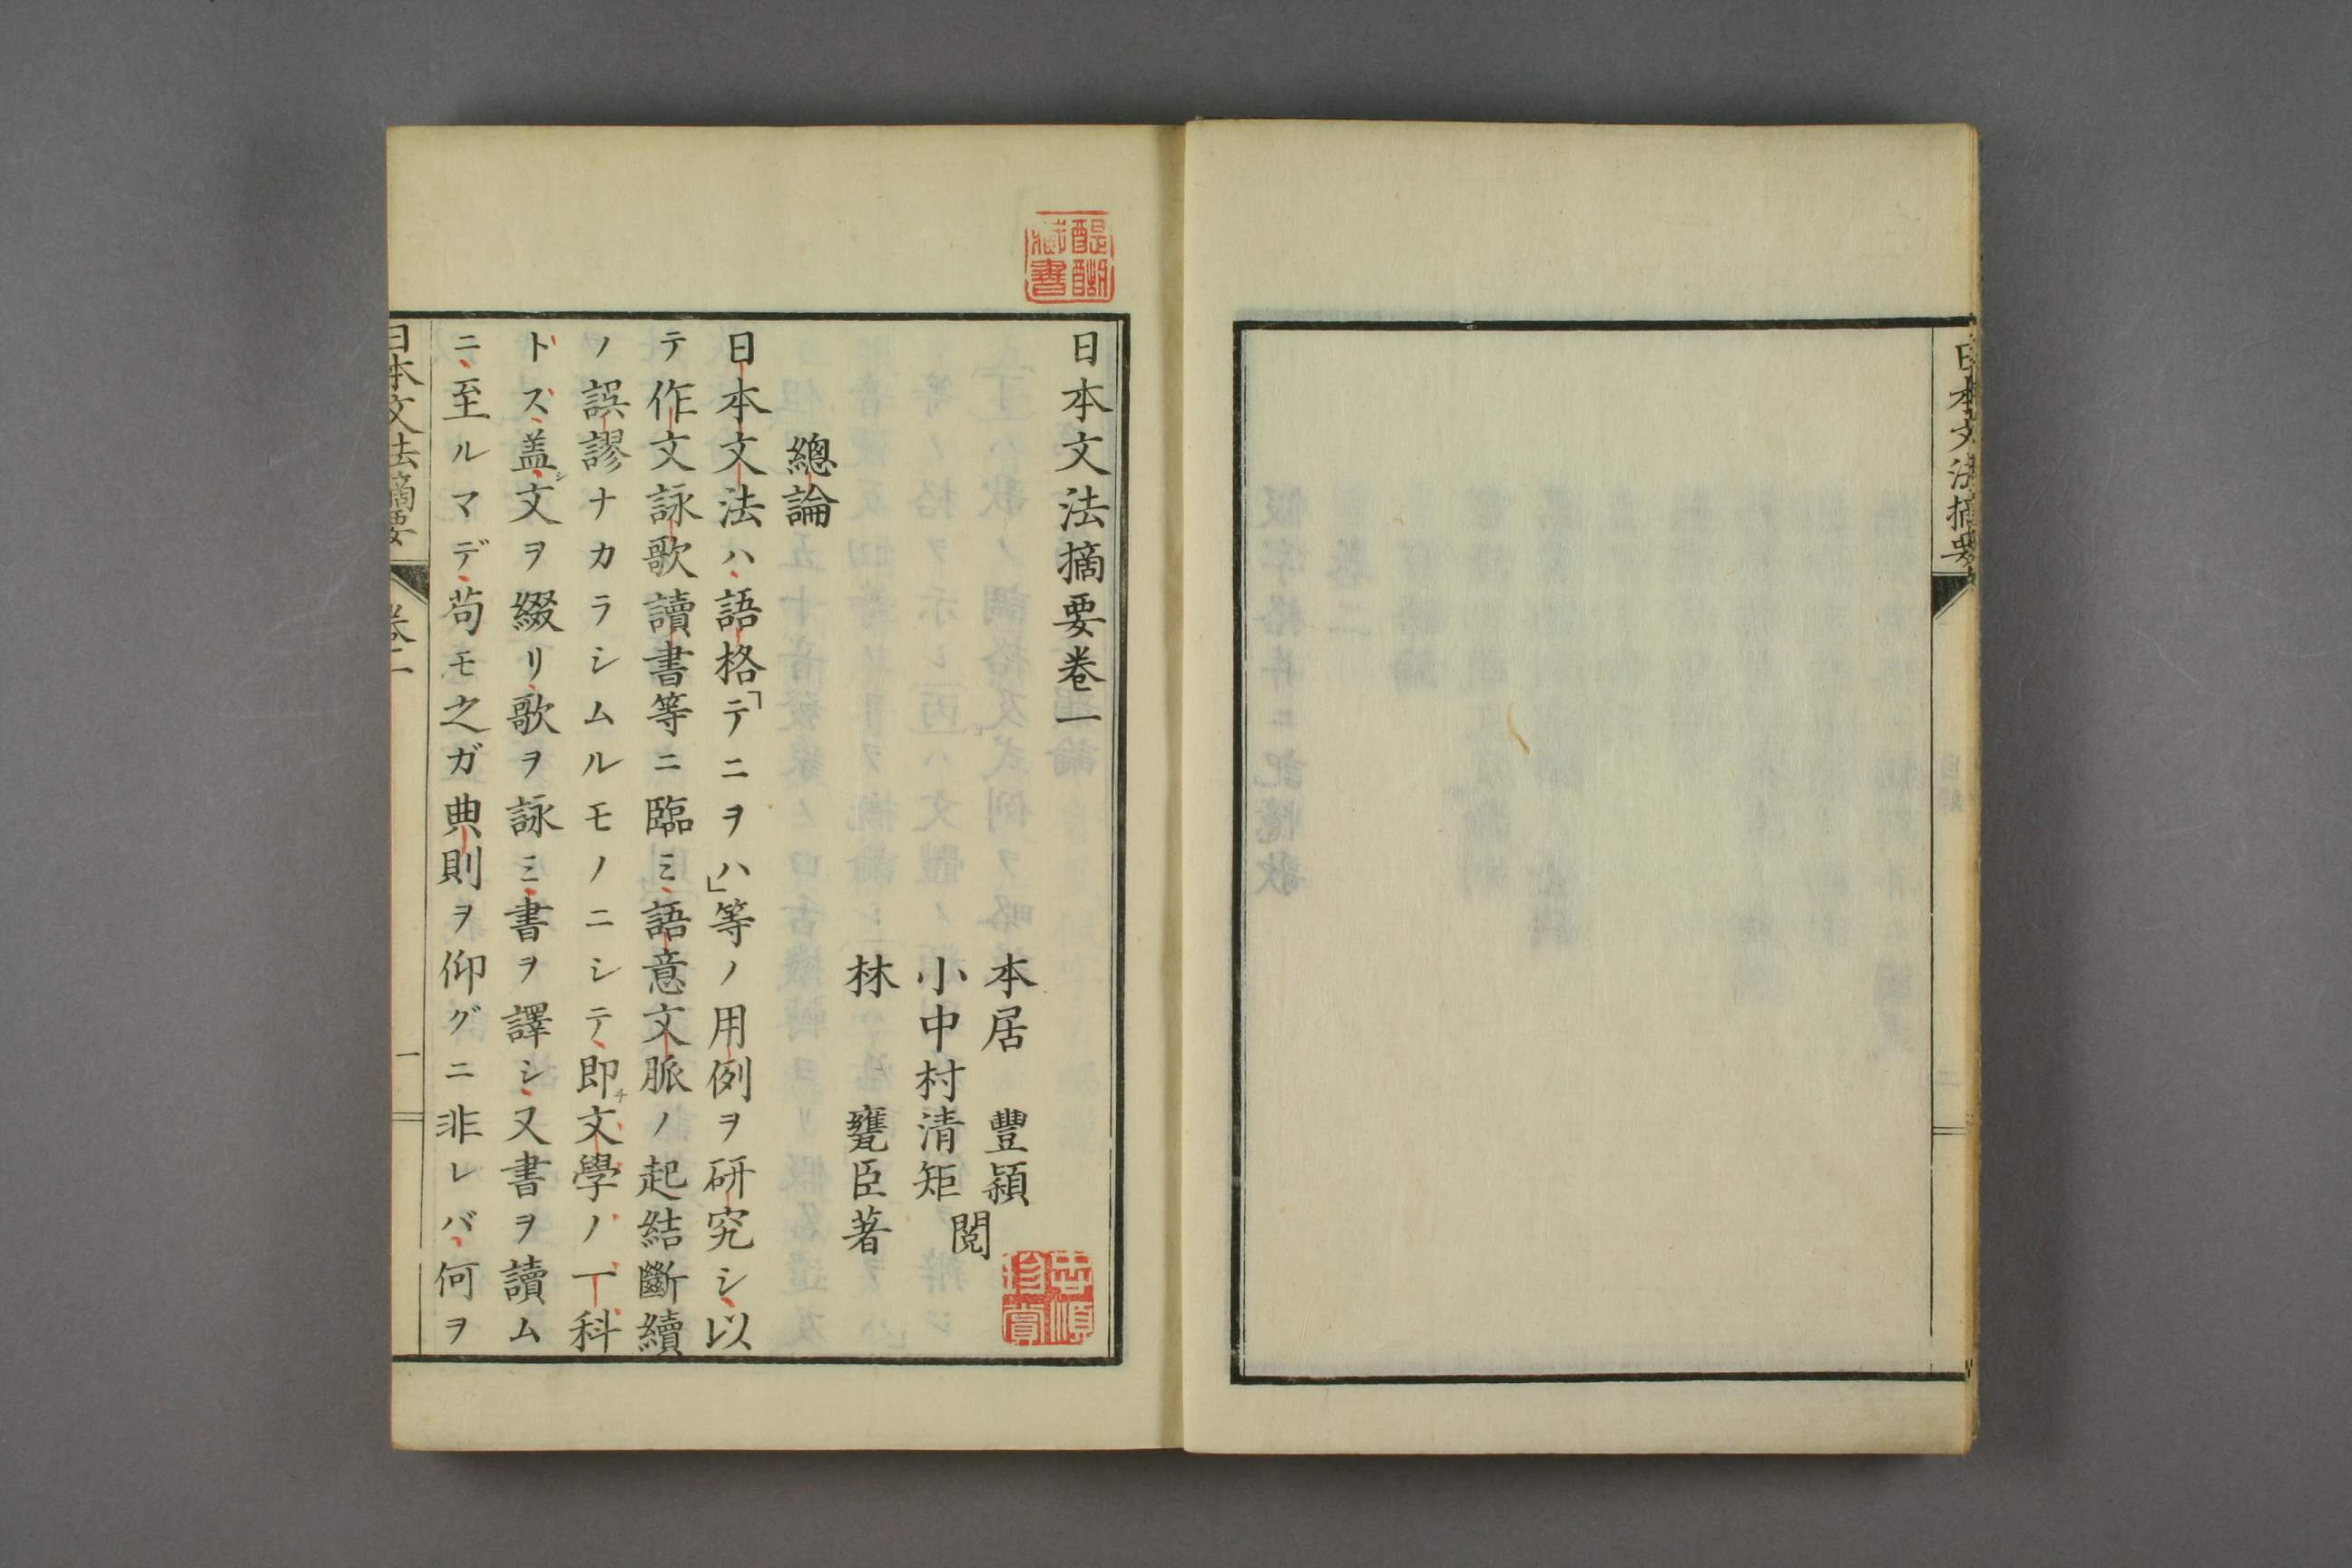 日本文法摘要
日本文法摘要卷一
本居豐穎
小中村清矩
閲
林甕臣著
總論
日本文法ハ語格「テニヲハ」等ノ用例ヲ研究シ以
テ作文詠歌讀書等ニ臨ミ語意文脈ノ起結斷續
ノ誤謬ナカラシムルモノニシテ即チ文學ノ一科
トス盖シ文ヲ綴リ歌ヲ詠ミ書ヲ譯シ又書ヲ讀ム
ニ至ルマデ苟モ之ガ典則ヲ仰グニ非レバ何ヲ
日本文法摘要
卷一
一
醍醐藏書
忠順珍賞